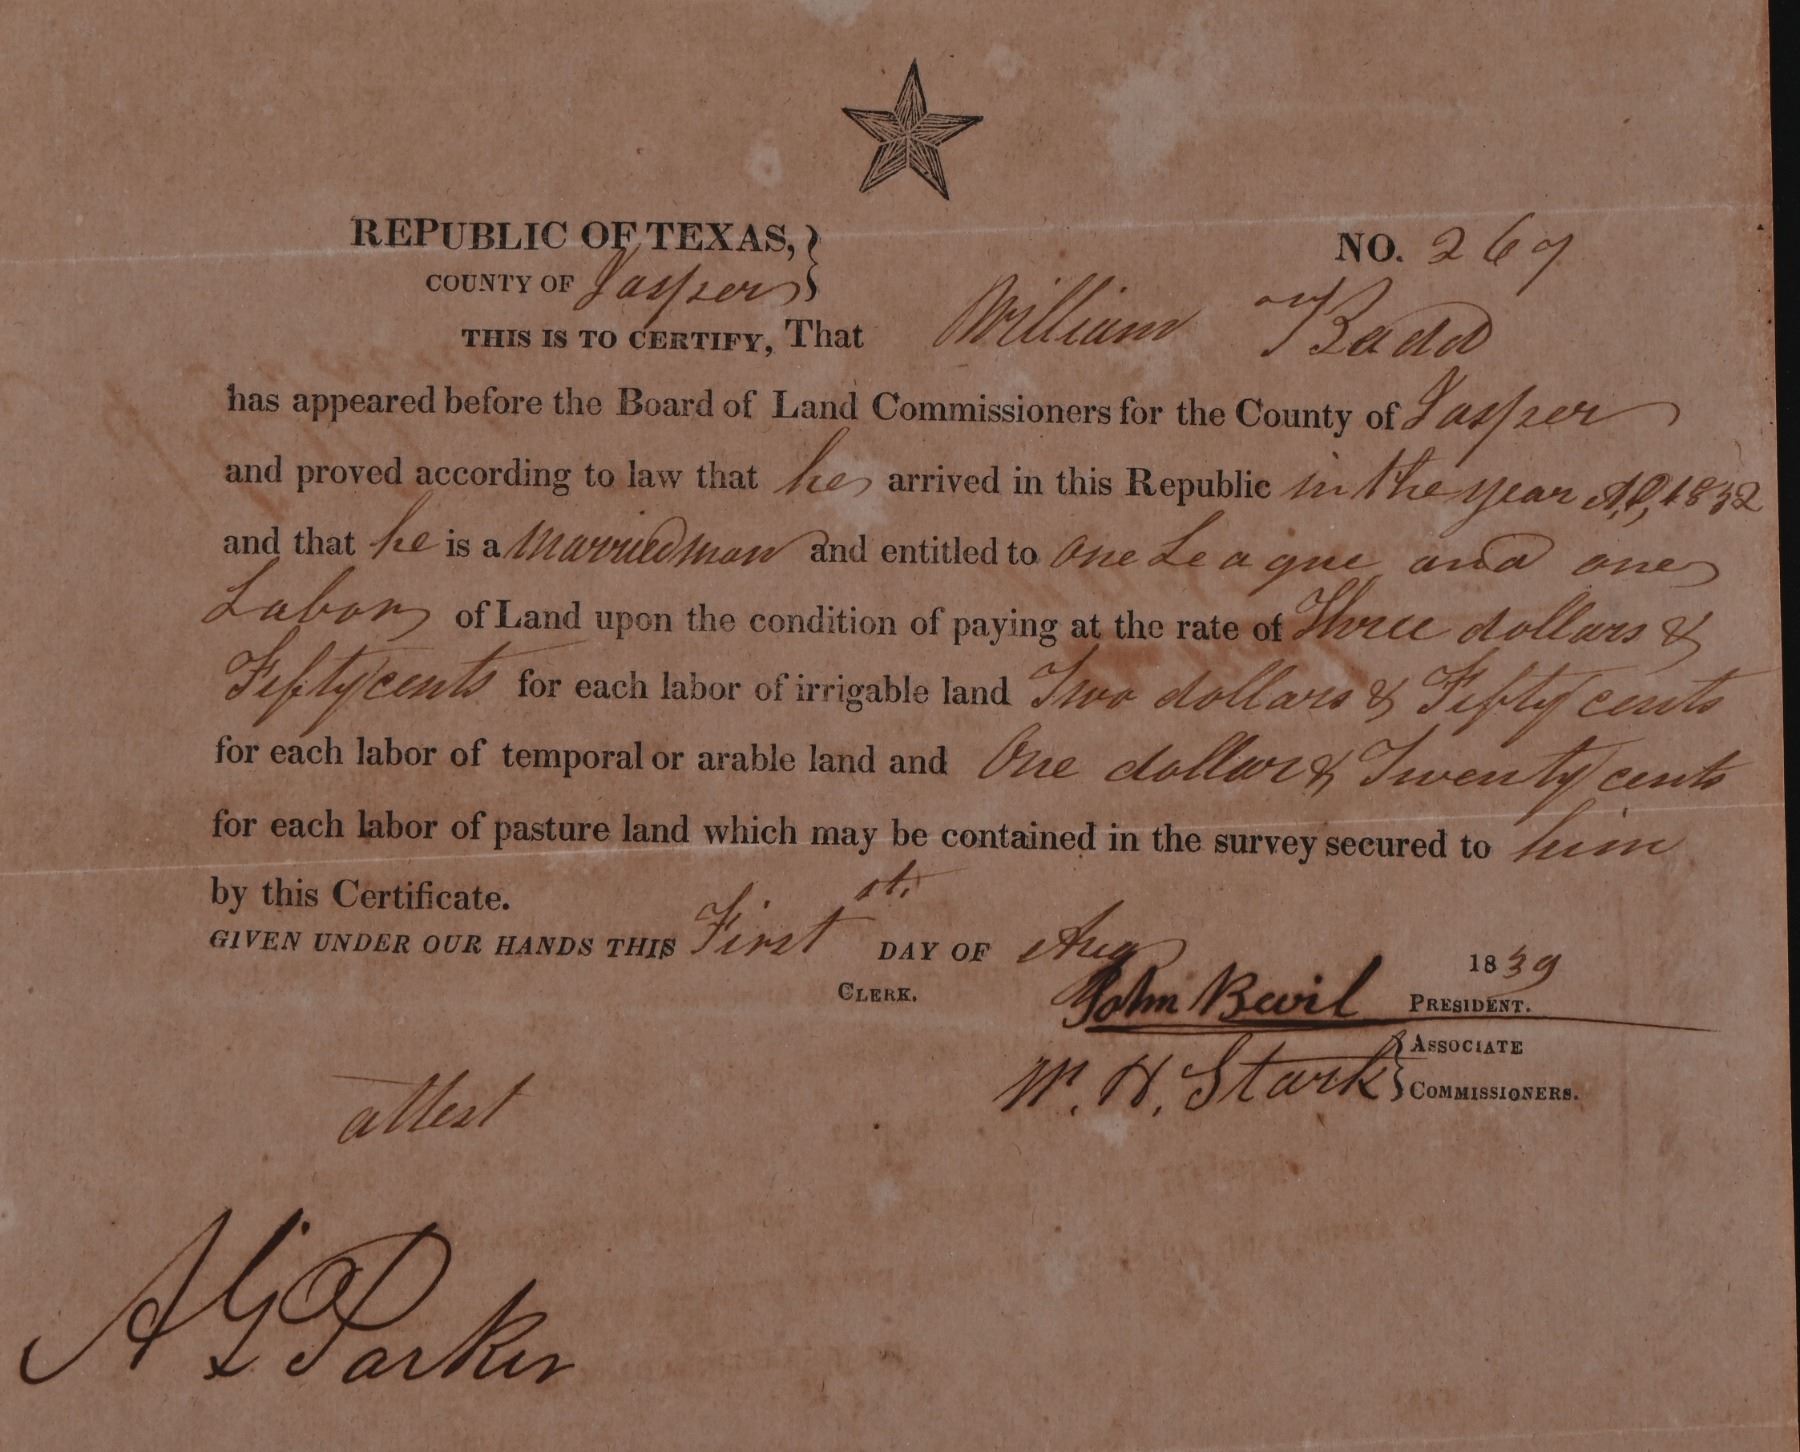 REPUBLIC OF TEXAS, } NO. 267
COUNTY OF Jasper }
THIS IS TO CERTIFY, That William Badd
has appeared before the Board of Land Commissioners for the County of Jasper
and proved according to law that he arrived in this Republic in the year A.D, 1832
and that he is a married man and entitled to One League and one
Labor of Land upon the condition of paying at the rate of Three dollars &
Fifty cents for each labor of irrigable land Two dollars & Fifty cents
for each labor of temporal or arable land and One dollar & Twenty cents
for each labor of pasture land which may be contained in the survey secured to him
by this Certificate.
GIVEN UNDER OUR HANDS THIS First st. DAY OF Aug 1839
CLERK. John Bevil PRESIDENT.
W. H. Stark } ASSOCIATE
COMMISSIONERS.
attest
A G Parker